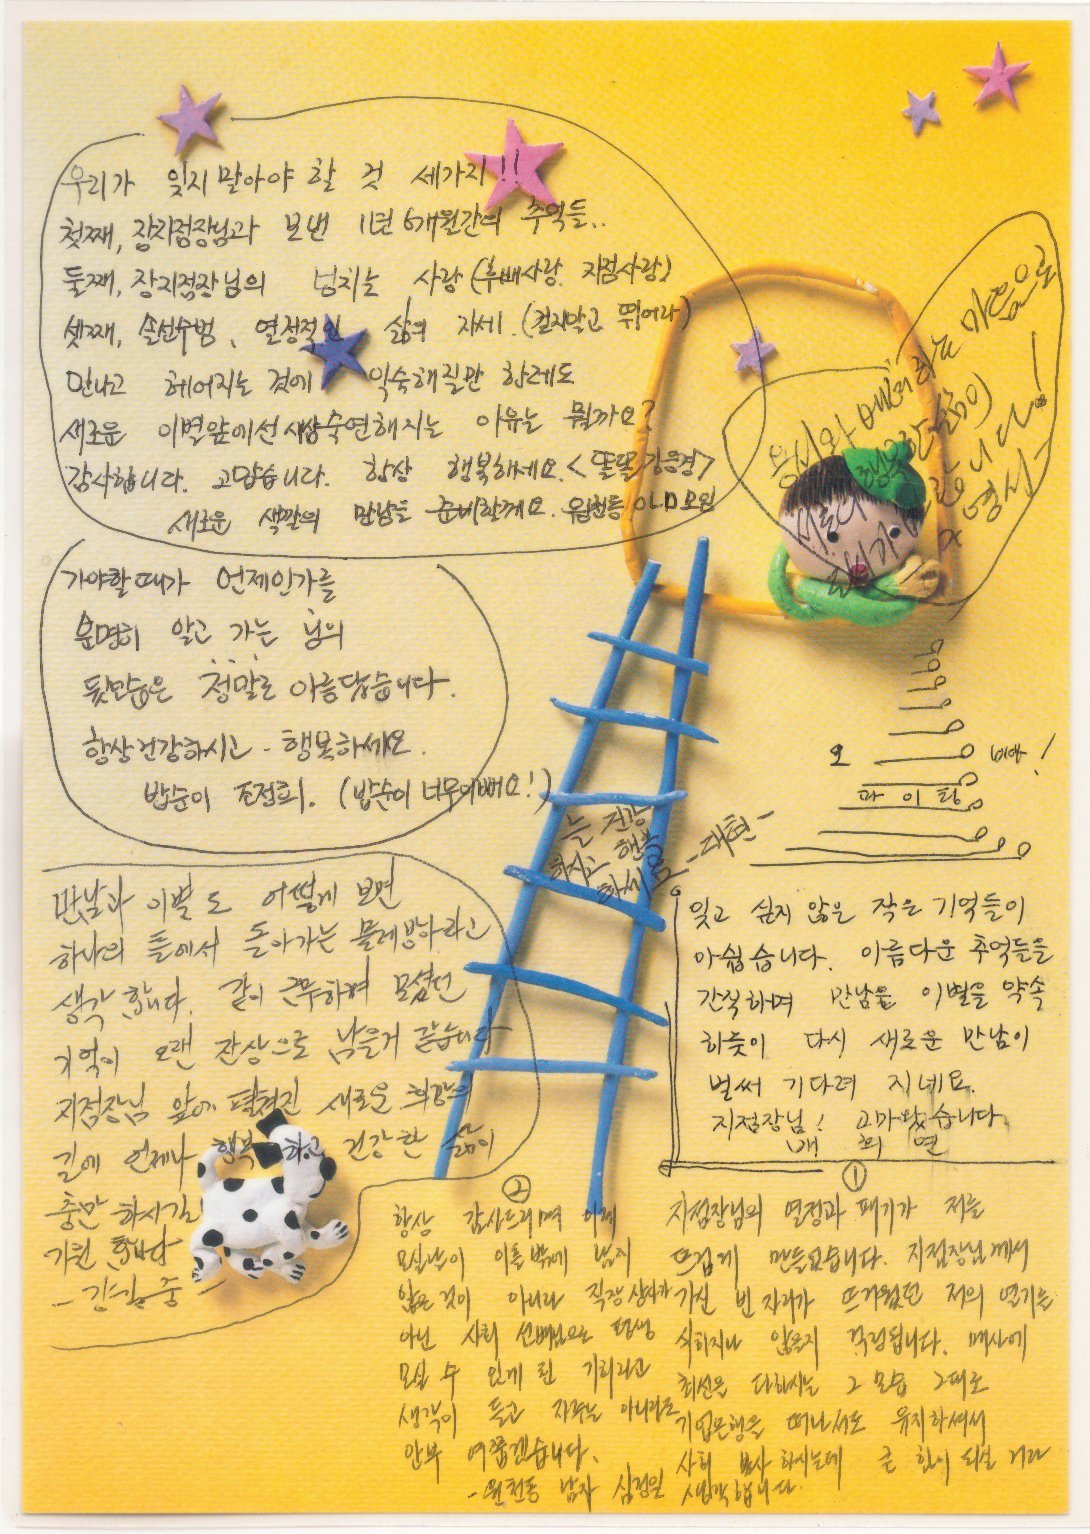 우리가 잊지 말아야 할 것 세가지!!
첫째, 장지점장님과 보낸 1년 6개월간의 추억들..
둘째, 장지점장님의 넘치는 사랑 (후배사랑. 지점사랑)
셋째, 솔선수범, 열정적인 삶의 자세. (걷지말고 뛰어라)
만나고 헤어지는 것에 익숙해질만 한데도
새로운 이별앞에선 새삼 숙연해지는 이유는 뭘까요?
감사합니다. 고맙습니다. 항상 행복하세요.
새로운 색깔의 만남을 준비할께요. 원천동
봉사와 베푸는 마음으로
가야할때가 언제인가를
분명히 알고 가는 님의
뒷모습은 정말로 아름답습니다.
항상 건강하시고 - 행복하세요.
밥순이 조정희. (밥순이 너무이뻐요!)
오 빠!
파 이 팅
늘 건강
하시고 행복
하세요 - 대현 -
만남과 이별도 어떻게 보면
하나의 틀에서 돌아가는 물레방아라고
생각 합니다. 같이 근무하며 모셨던
기억이 오랜 잔상으로 남을거 같습니다
지점장님 앞에 펼쳐진 새로운 희망의
길에 언제나 행복하고 건강한 삶이
충만 하시길
기원 합니다
잊고 싶지 않은 작은 기억들이
아쉽습니다. 아름다운 추억들을
간직하며 만남을 이별을 약속
하듯이 다시 새로운 만남이
벌써 기다려 지네요.
지점장님! 고마웠습니다.
배 희 열
①
지점장님의 열정과 패기가 저를
뜨겁게 만들었습니다. 지점장님께서
가신 빈 자리가 뜨거웠던 저의 열기를
식히지나 않을지 걱정됩니다. 매사에
최선을 다하시는 그 모습 그대로
기업은행을 떠나셔도 유지하셔서
사회 봉사 하시는데 큰 힘이 되실 거라
생각합니다.
②
항상 감사드리며 이제
모실날이 이틀 밖에 남지
않은 것이 아니라 직장 상사가
아닌 사회 선배님으로 평생
모실 수 있게 된 기회라고
생각이 들고 자주는 아니라도
안부 여쭙겠습니다.
- 원천동 남자 심정일